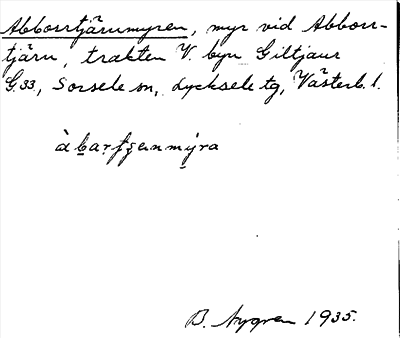 Abborrtjärnmyren, myr vid Abborr-
tjärn, trakten V. byn Giltjaur
G33, Sorsele sn, Lycksele tg, Västerb. l.
B. Nygren 1935.